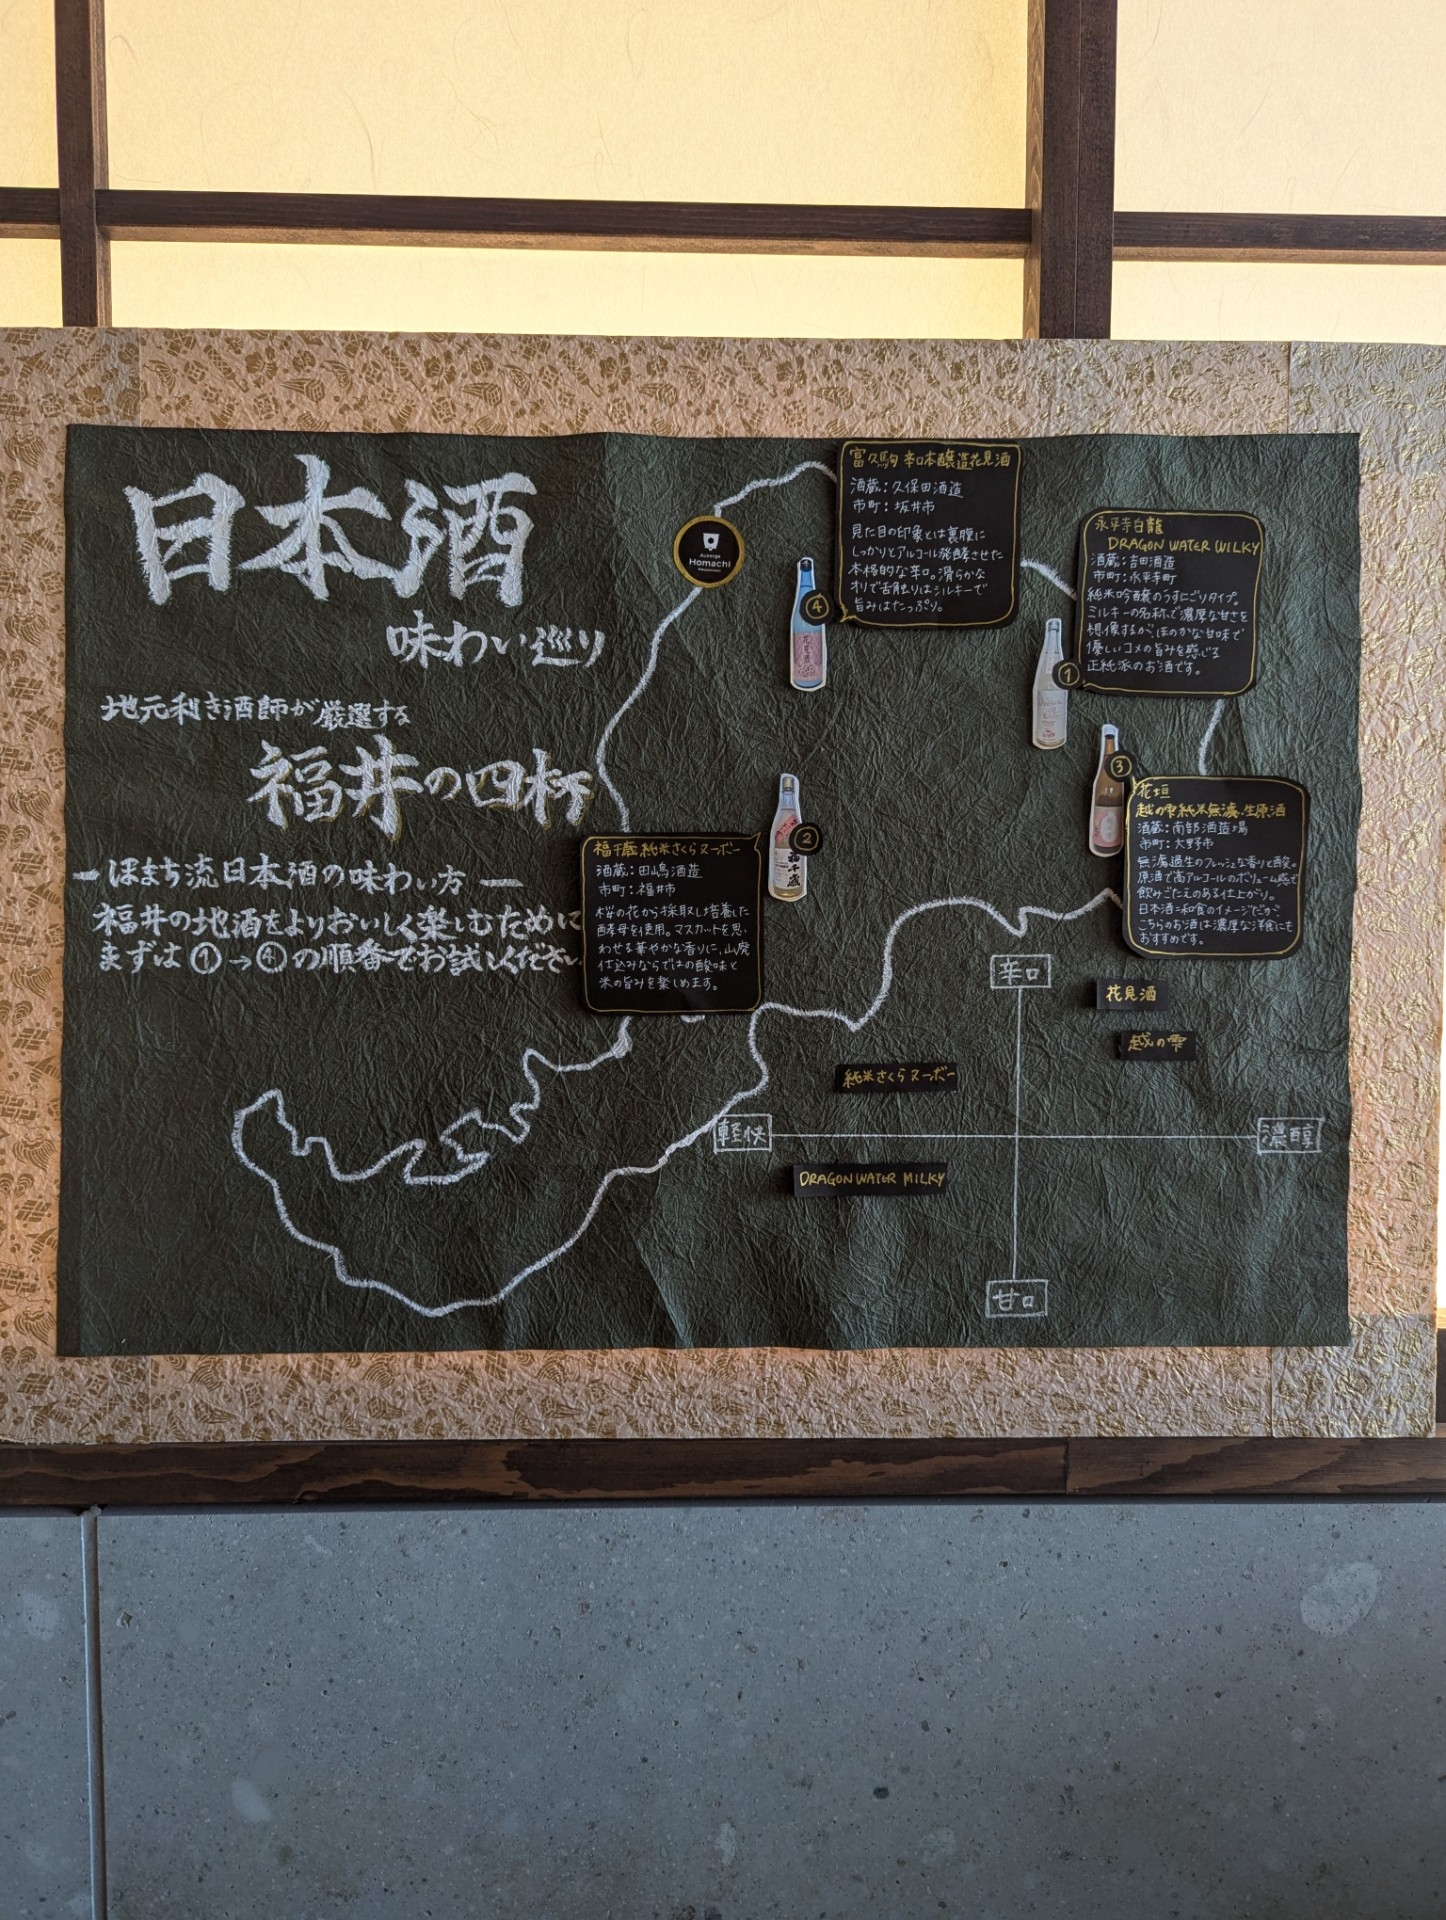 日本酒
味わい巡り
地元利き酒師が厳選する
福井の四杯
ーほまち流日本酒の味わい方ー
福井の地酒をよりおいしく楽しむために
まずは①→④の順番でお試しください
Auberge
Homachi
富久駒 辛口本醸造花見酒
酒蔵：久保田酒造
市町：坂井市
見た目の印象とは裏腹に
しっかりとアルコール発酵させた
本格的な辛口。滑らかな
オリで舌触りはシルキーで
旨みはたっぷり。
④
花見酒
永平寺白龍
DRAGON WATER WILKY
酒蔵：吉田酒造
市町：永平寺町
純米吟醸のうすにごりタイプ。
ミルキーの名称で濃厚な甘さを
想像するが、ほのかな甘味で
優しいコメの旨みを感じる
正統派のお酒です。
①
③
花垣
越の雫純米無濾過生原酒
酒蔵：南部酒造場
市町：大野市
無濾過生のフレッシュな香りと酸。
原酒で高アルコールのボリューム感で
飲みごたえのある仕上がり。
日本酒=和食のイメージだが、
こちらのお酒は濃厚な洋食にも
おすすめです。
福千歳 純米さくらヌーボー
酒蔵：田嶋酒造
市町：福井市
桜の花から採取し培養した
酵母を使用。マスカットを思
わせる華やかな香りに、山廃
仕込みならではの酸味と
米の旨みを楽しめます。
②
福千歳
辛口
花見酒
越の雫
純米さくらヌーボー
軽快
濃醇
DRAGON WATER MILKY
甘口